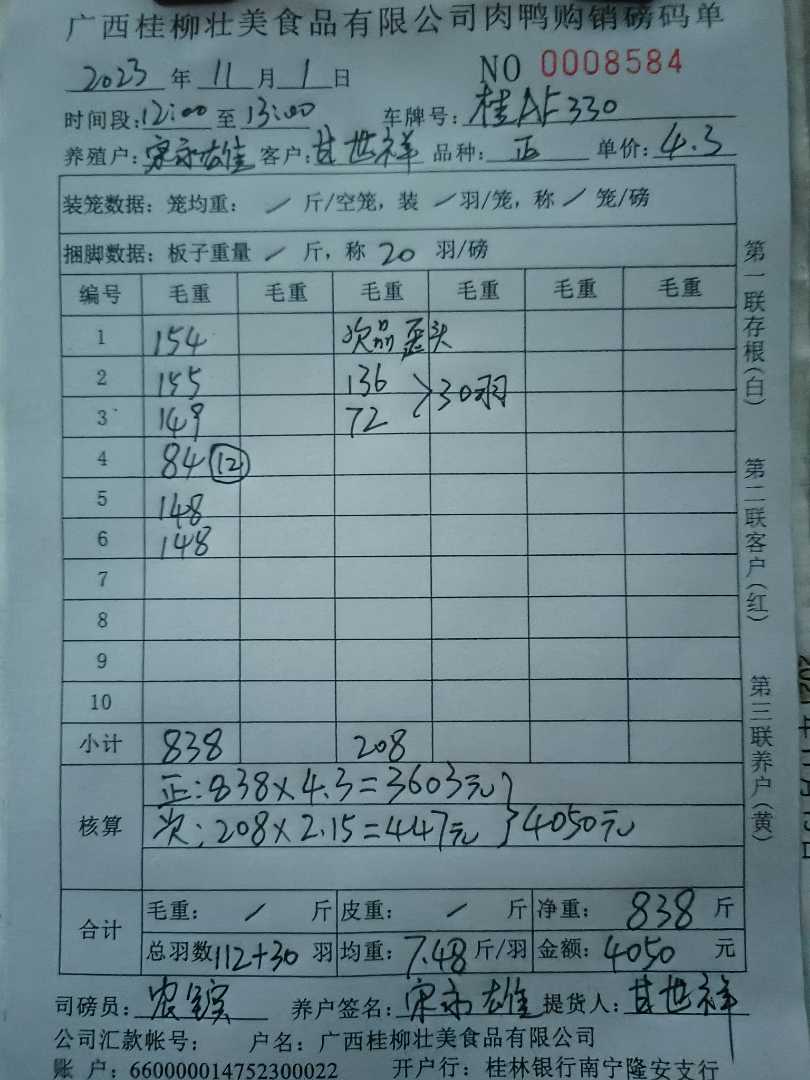 广西桂柳壮美食品有限公司肉鸭购销磅码单
2023年11月1日 NO 0008584
时间段:12:00至13:00 车牌号:桂AF330
养殖户:宋永雄 客户:甘世祥 品种:正 单价:4.3
装笼数据:笼均重: / 斤/空笼,装 / 羽/笼,称 / 笼/磅
捆脚数据:板子重量 / 斤,称 20 羽/磅
编号 毛重 毛重 毛重 毛重 毛重 毛重
1 154 次品歪头
2 155 136
3 149 72 30羽
4 84 (12)
5 148
6 148
7
8
9
10
小计 838 208
核算
正:838×4.3=3603元
次:208×2.15=447元 }4050元
合计
毛重: / 斤 皮重: / 斤 净重: 838 斤
总羽数112+30羽 均重:7.48斤/羽 金额:4050元
司磅员: 养户签名:宋永雄 提货人:甘世祥
公司汇款帐号: 户名:广西桂柳壮美食品有限公司
账 户:660000014752300022 开户行:桂林银行南宁隆安支行
第一联存根(白)
第二联客户(红)
第三联养户(黄)